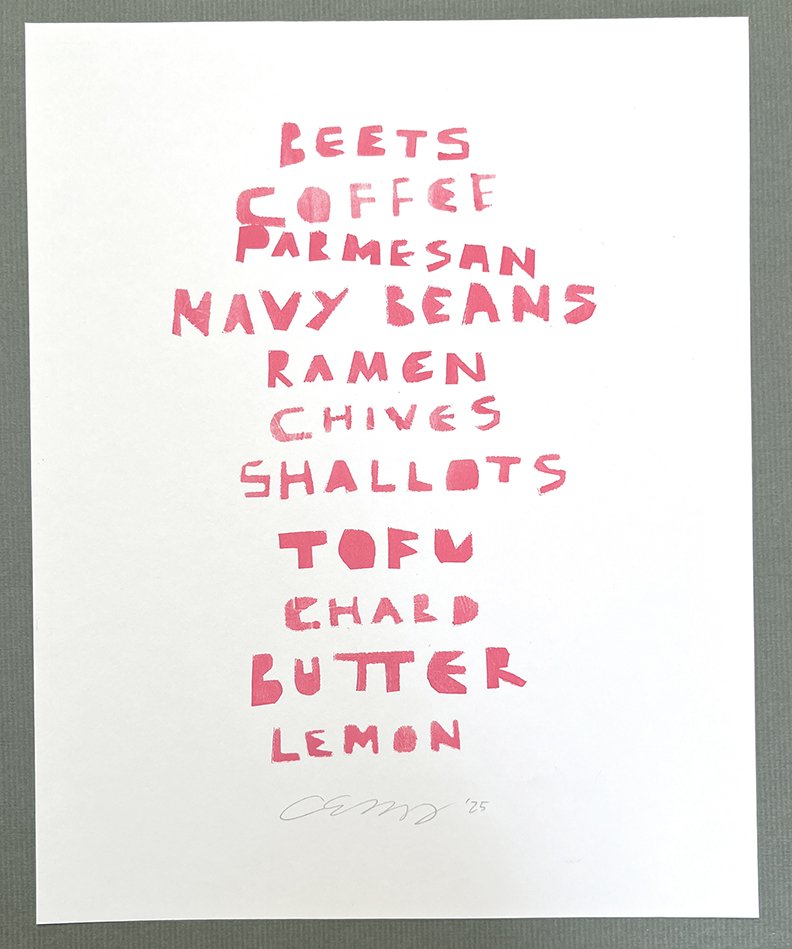 BEETS
COFFEE
PARMESAN
NAVY BEANS
RAMEN
CHIVES
SHALLOTS
TOFU
CHARD
BUTTER
LEMON
'25